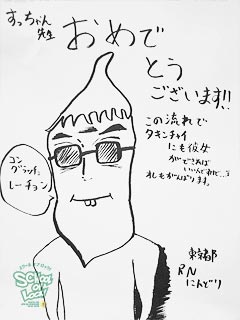 すっちゃん
先生
おめで
とう
ございます!!
この流れで
タキンチャイ
にも彼女
ができれば
いいんですが…
れしもがんばります。
コン
グラッチュ
レーチョン
東京都
RN
にんどり
SCHOOL
OF
LOCK!